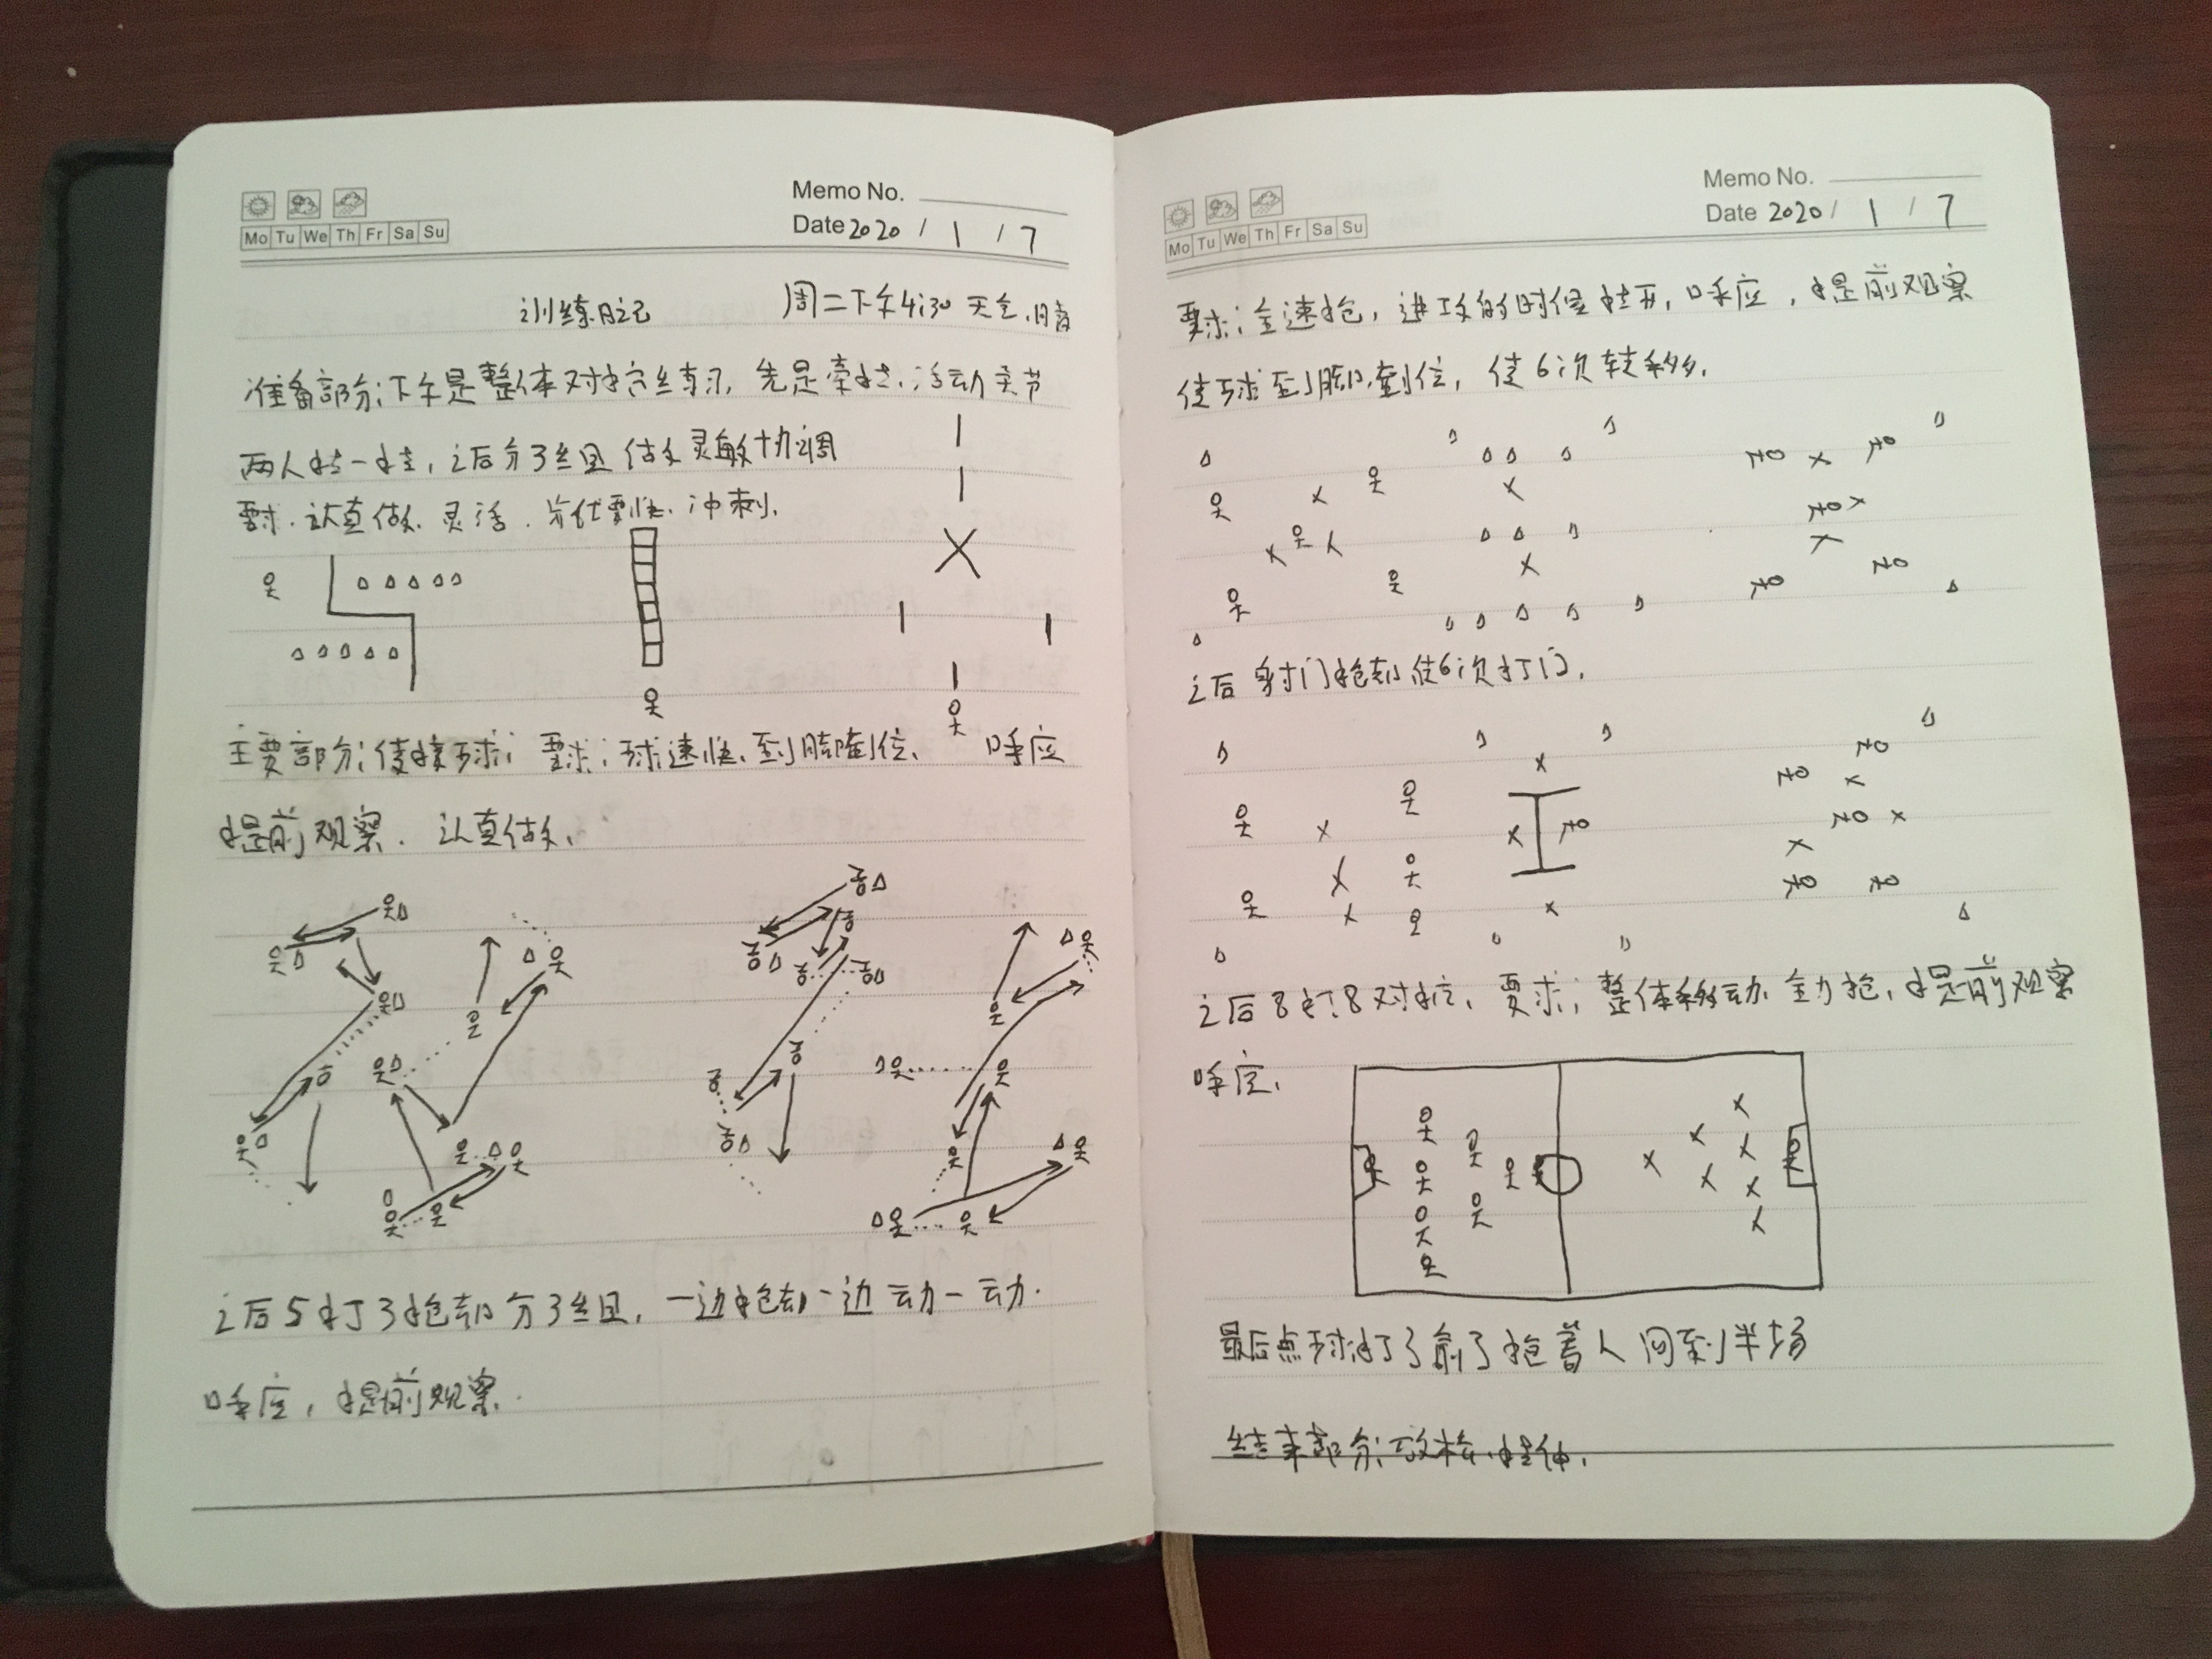 Memo No.
Mo Tu We Th Fr Sa Su
Date 2020 / 1 / 7
训练日记 周二下午4:30 天气:晴
准备部分:下午是整体对抗练习,先是牵拉,活动关节
两人拉一拉,之后分3组做灵敏协调
要求:认真做、灵活、步伐要快、冲刺.
主要部分:传接球;要求;球速快、到脚到位、呼应
提前观察.认真做、
之后5打3抢劫分3组,一边抢劫一边动一动.
呼应,提前观察.
Memo No.
Mo Tu We Th Fr Sa Su
Date 2020 / 1 / 7
要求;全速抢,进攻的时候拉开,呼应,提前观察
传球到脚、到位,传6次转移.
之后射门抢劫传6次打门.
之后8打8对抗、要求;整体移动、全力抢、提前观察
呼应、
最后点球打了输了抢着人回到半场
结束部分:放松、拉伸.